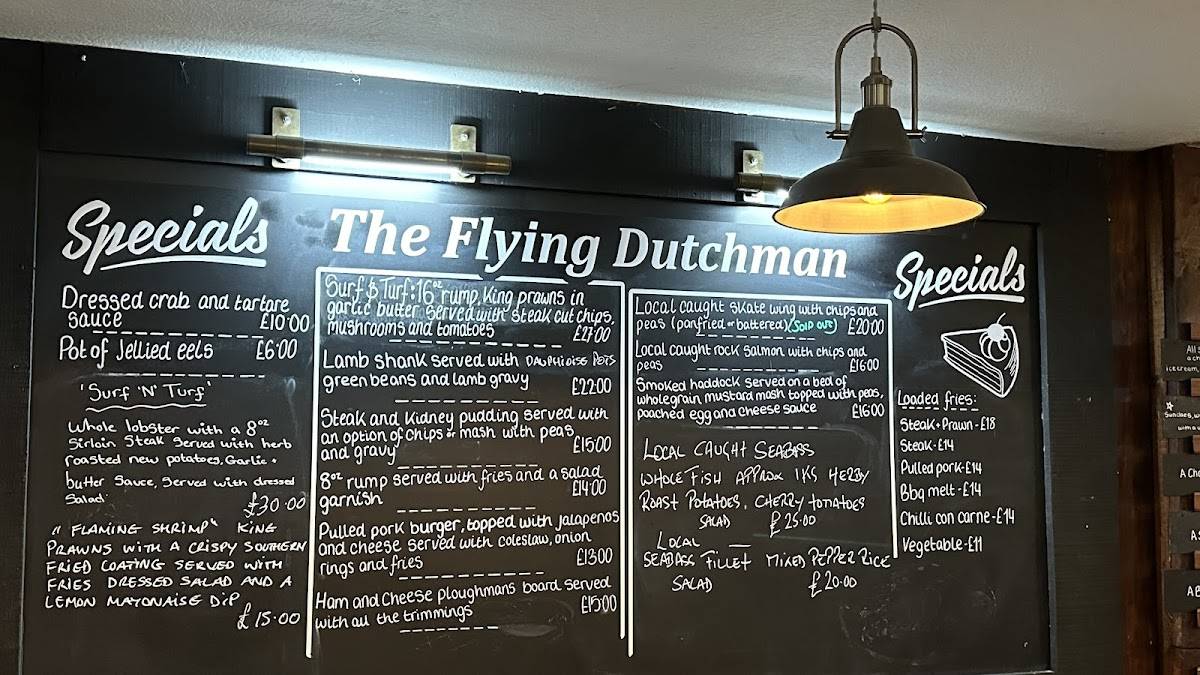 Specials
The Flying Dutchman
Specials
Dressed crab and tartare
sauce £10.00
Pot of Jellied eels £6.00
'Surf 'N' Turf'
Whole lobster with a 8oz
Sirloin Steak Served with herb
roasted new potatoes, Garlic +
butter Sauce, Served with dressed
Salad. £30.00
"FLAMING SHRIMP" KING
PRAWNS WITH A CRISPY SOUTHERN
FRIED COATING SERVED WITH
FRIES DRESSED SALAD AND A
LEMON MAYONAISE DIP
£15.00
Surf & Turf: 16oz rump, King prawns in
garlic butter served with steak cut chips,
mushrooms and tomatoes £27.00
Lamb shank served with DAUPHIOISS POTS
green beans and lamb gravy £22.00
Steak and Kidney pudding served with
an option of chips or mash with peas
and gravy £15.00
8oz rump served with fries and a salad
garnish £14.00
Pulled pork burger, topped with jalapenos
and cheese served with coleslaw, onion
rings and fries £13.00
Ham and Cheese ploughmans board served
with all the trimmings £15.00
Local caught skate wing with chips and
peas (panfried or battered) (SOLD OUT) £20.00
Local caught rock salmon with chips and
peas £16.00
Smoked haddock served on a bed of
wholegrain mustard mash topped with peas,
poached egg and cheese sauce £16.00
LOCAL CAUGHT SEABASS
WHOLE FISH APPROX 1KG HERBY
ROAST POTATOES, CHERRY TOMATOES
SALAD £25.00
LOCAL
SEABASS FILLET MIXED PEPPER RICE
SALAD £20.00
Loaded fries:
Steak + Prawn - £18
Steak - £14
Pulled pork - £14
Bbq melt - £14
Chilli con carne - £14
Vegetable - £11
All
ice cream,
Sundaes,